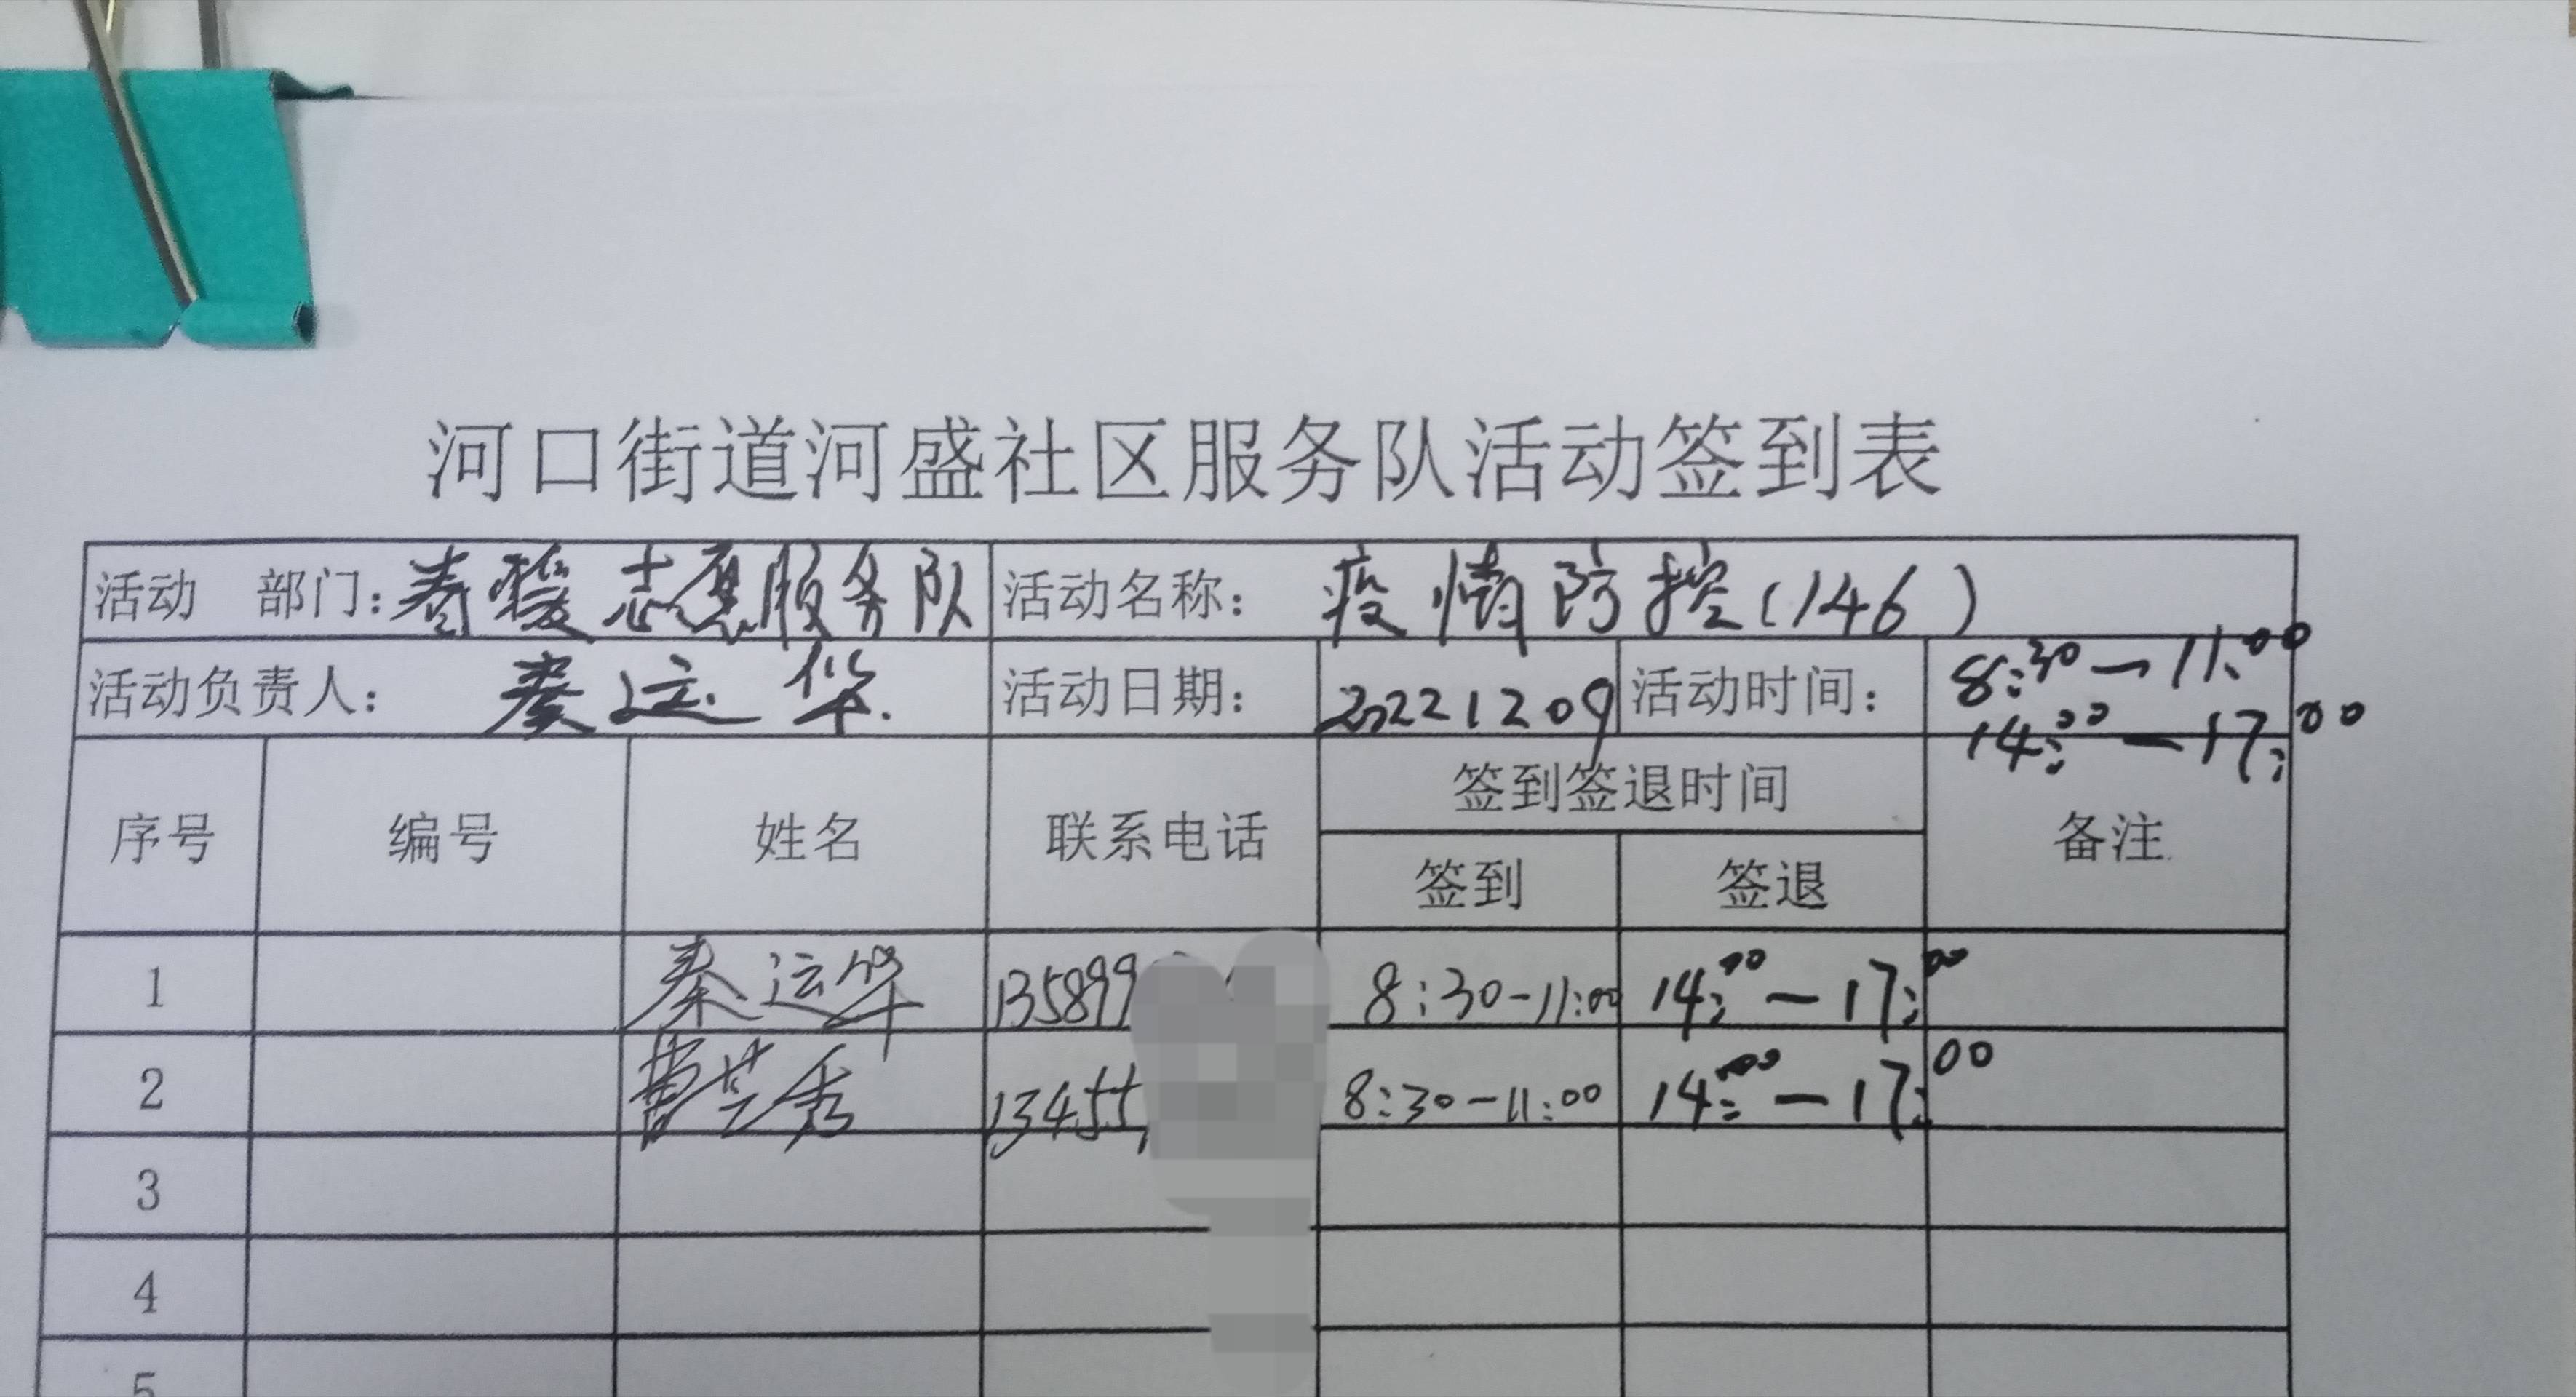 河口街道河盛社区服务队活动签到表
活动 部门：春暖志愿服务队 活动名称： 疫情防控（146）
活动负责人： 秦运华. 活动日期： 20221209 活动时间： 8:30—11:00
14:00—17:00
序号 编号 姓名 联系电话 签到签退时间 备注
签到 签退
1 秦运华 135899 8:30-11:00 14:00—17:00
2 曹兰秀 13455 8:30-11:00 14:00—17:00
3
4
5